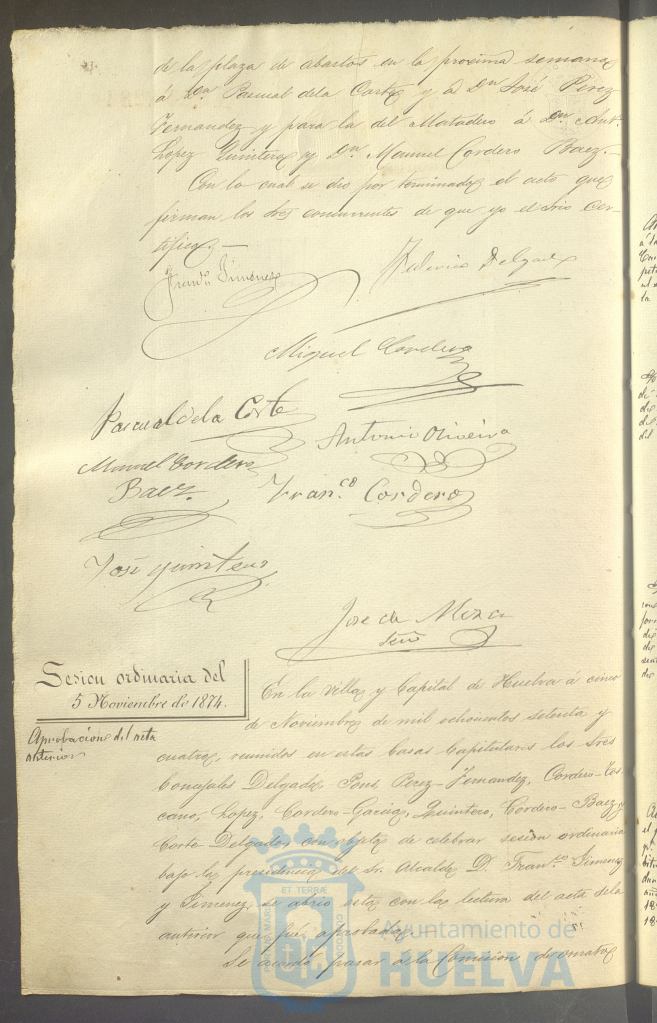 de la plaza de abastos en la proxima semana
á Dn. Pascual dela Corte y á Dn José Perez
Fernandez y para la del Matadero á Dn. Antº
Lopez Quintero y Dn. Manuel Cordero Baez.—
Con lo cual se dio por terminado el acto que
firman los Sres concurrentes de que yo el Srio cer-
tifico.—
Franco. Gimenez
Federico Delgado
Miguel Cordero
Pascual de la Corte
Antonio Oliveira
Manuel Cordero
Baez.
Fran.co Cordero
José Quintero
Jose de Meza
Srio
Sesion ordinaria del
5 Noviembre de 1874.
Aprobacion del acta
anterior
En la Villa y Capital de Huelva á cinco
de Noviembre de mil ochocientos setenta y
cuatro, reunidos en estas Casas Capitulares los Sres
Concejales Delgado, Pons, Perez-Fernandez, Cordero-Tos-
cano, Lopez, Cordero-Garcia, Quintero, Cordero-Baez y
Corte-Delgado, con objeto de celebrar sesion ordinaria
bajo la presidencia del Sr. Alcalde D. Fran.co Gimenez
y Gimenez, se abrió esta con la lectura del acta dela
anterior que fué aprobada.
Se acordó pasar á la Comision de ornato
ET TERRÆ
Ayuntamiento de
HUELVA